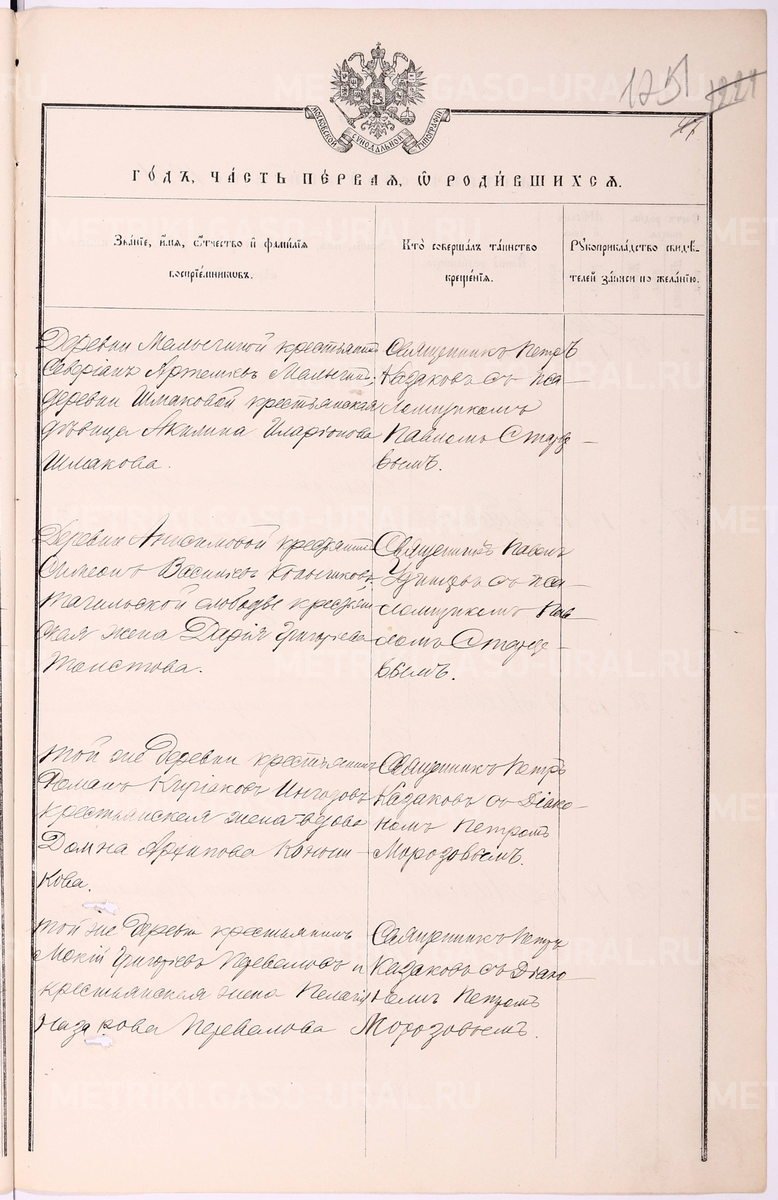 125
1221
МОСКОВСКОЙ СУНОДАЛЬНОЙ ТИПОГРАФІИ
ГО́ДЪ, ЧА́СТЬ ПЕ́РВАЯ, Ѡ҆ РОДИ́ВШИХСЯ.
Зва́нїе, и҆́мѧ, ѻ҆́тчество и҆ фами́лїѧ
воспрїе́мниковъ.
Кто̀ соверша́лъ та́инство
креще́нїѧ.
Рꙋкоприкла́дство свидѣ́-
телей за́писи по жела́нїю.
Деревни Малыгиной крестьянин
Артемьевъ Малыгин;
деревни Шмаковой крестьянская
дѣвица Акилина Иларіонова
Шмакова.
Священникъ Петръ
Казаковъ съ пса-
ломщикомъ
Павломъ Старце-
вымъ.
Деревни Анисимовой крестьянин
Симеонъ Васильевъ
Тагильской слободы крестьян
ская жена Дарія Григорьева
Толстова.
Священникъ Павелъ
Удинцевъ съ пса-
ломщикомъ Пав-
ломъ Старце-
вымъ.
Той же деревни крестьянинъ
Романъ Киріаковъ
крестьянская жена вдова
Домна Архипова Коност-
кова.
Священникъ Петръ
Казаковъ съ Діако-
номъ Петромъ
Морозовымъ.
Той же деревни крестьянинъ
Мокій Григорьевъ Перевалов и
крестьянская жена Пелагія
Назарова Перевалова
Священникъ Петръ
Казаковъ съ Діако
номъ Петромъ
Морозовымъ.
METRIKI.GASO-URAL.RU